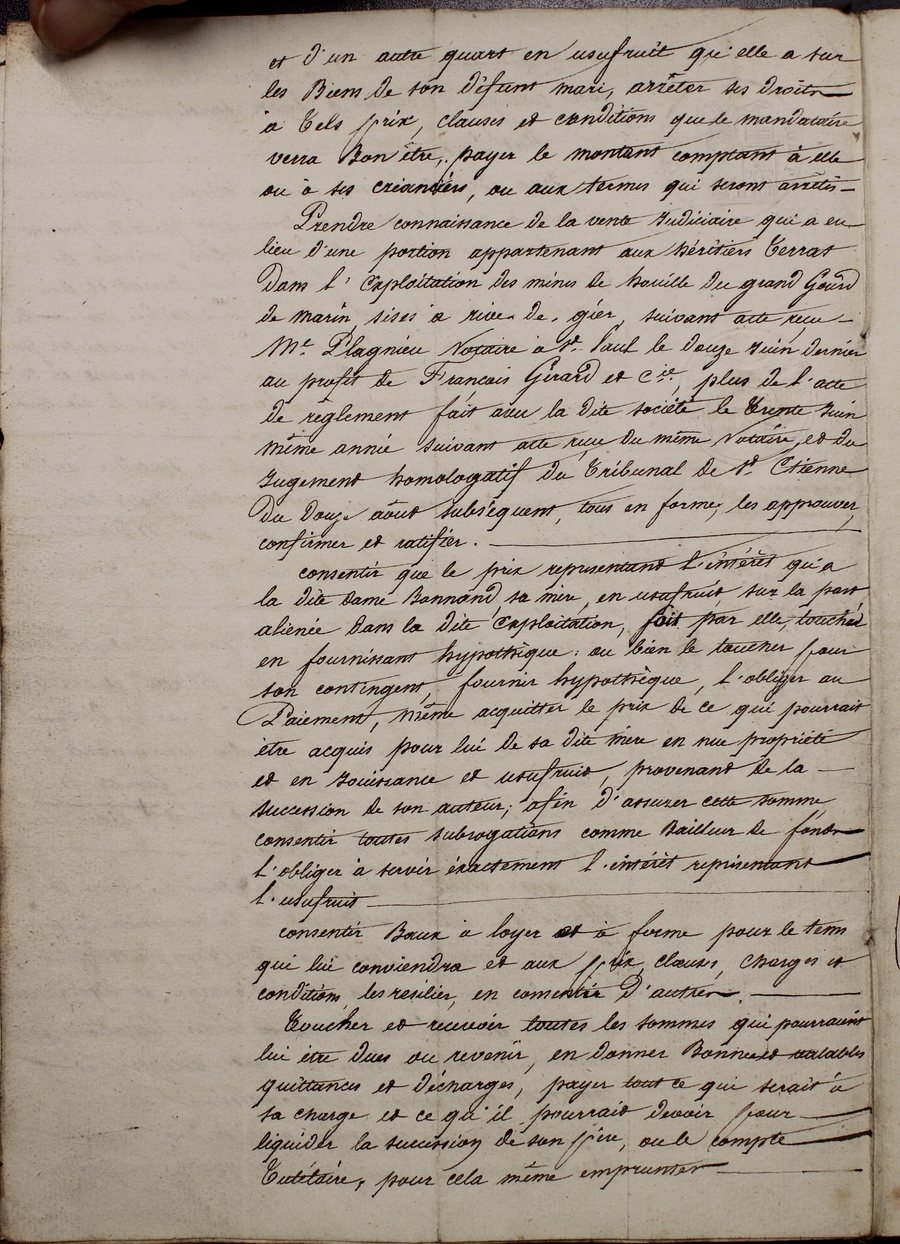 et d'un autre quart en usufruit qu'elle a sur
les Biens de son défunt mari, arrêter ses droits
a tels prix, clauses et conditions que le mandataire
verra Bon être, payer le montant comptant à elle
ou à ses créanciers, ou aux termes qui seront arrêtés
Prendre connaissance de la vente Judiciaire qui a eu
lieu d'une portion appartenant aux héritiers Terras
Dans l'Exploitation des mines de houille du grand Gourd
de marin, sises à rive-de-gier, suivant acte reçu
Me. Plagnieu Notaire à St. Paul le douze Juin dernier
au profit de François Girard et Cie., plus de l'acte
de règlement fait avec la dite société le Trente Juin
même année suivant acte reçu du même Notaire, et du
Jugement homologatif du Tribunal de St. Etienne
Du Douze août subséquent, tous en forme; les approuver,
confirmer et ratifier.
consentir que le prix representant l'intérêt qu'a
la dite dame Bonnand, sa mère, en usufruit sur la part
aliénée dans la dite Exploitation, soit par elle touché
en fournissant hypothèque: ou bien le toucher pour
son contingent, fournir hypothèque, l'obliger au
Paiement, même acquitter le prix de ce qui pourrait
être acquis pour lui de sa dite mère en nue propriété
et en Jouissance et usufruit, provenant de la
succession de son auteur; afin d'assurer cette somme,
consentir toutes subrogations comme Bailleur de fonds
l'obliger à servir éxactement l'intérêt représentant
l'usufruit
consentir Baux à loyer et à ferme pour le tems
qui lui conviendra et aux prix, clauses, charges et
conditions, les resilier, en consentir d'autres.
Toucher et recevoir toutes les sommes qui pourraient
lui être dues ou revenir, en donner Bonnes et valables
quittances et décharges, payer tout ce qui serait à
sa charge et ce qu'il pourrait devoir pour
liquider la succession de son père, ou le compte
Tutélaire, pour cela même emprunter